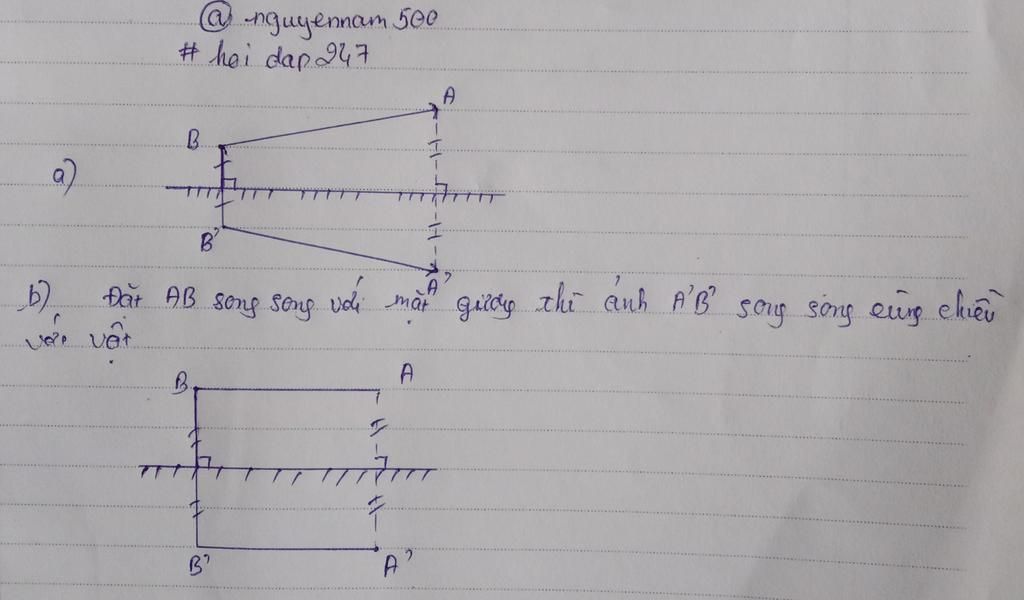 @ nguyennam 500
# hoi dap 247
A
B
a)
B'
A'
b) Đặt AB song song với mặt gương thì ảnh A'B' song song cùng chiều
với vật
B A
B' A'